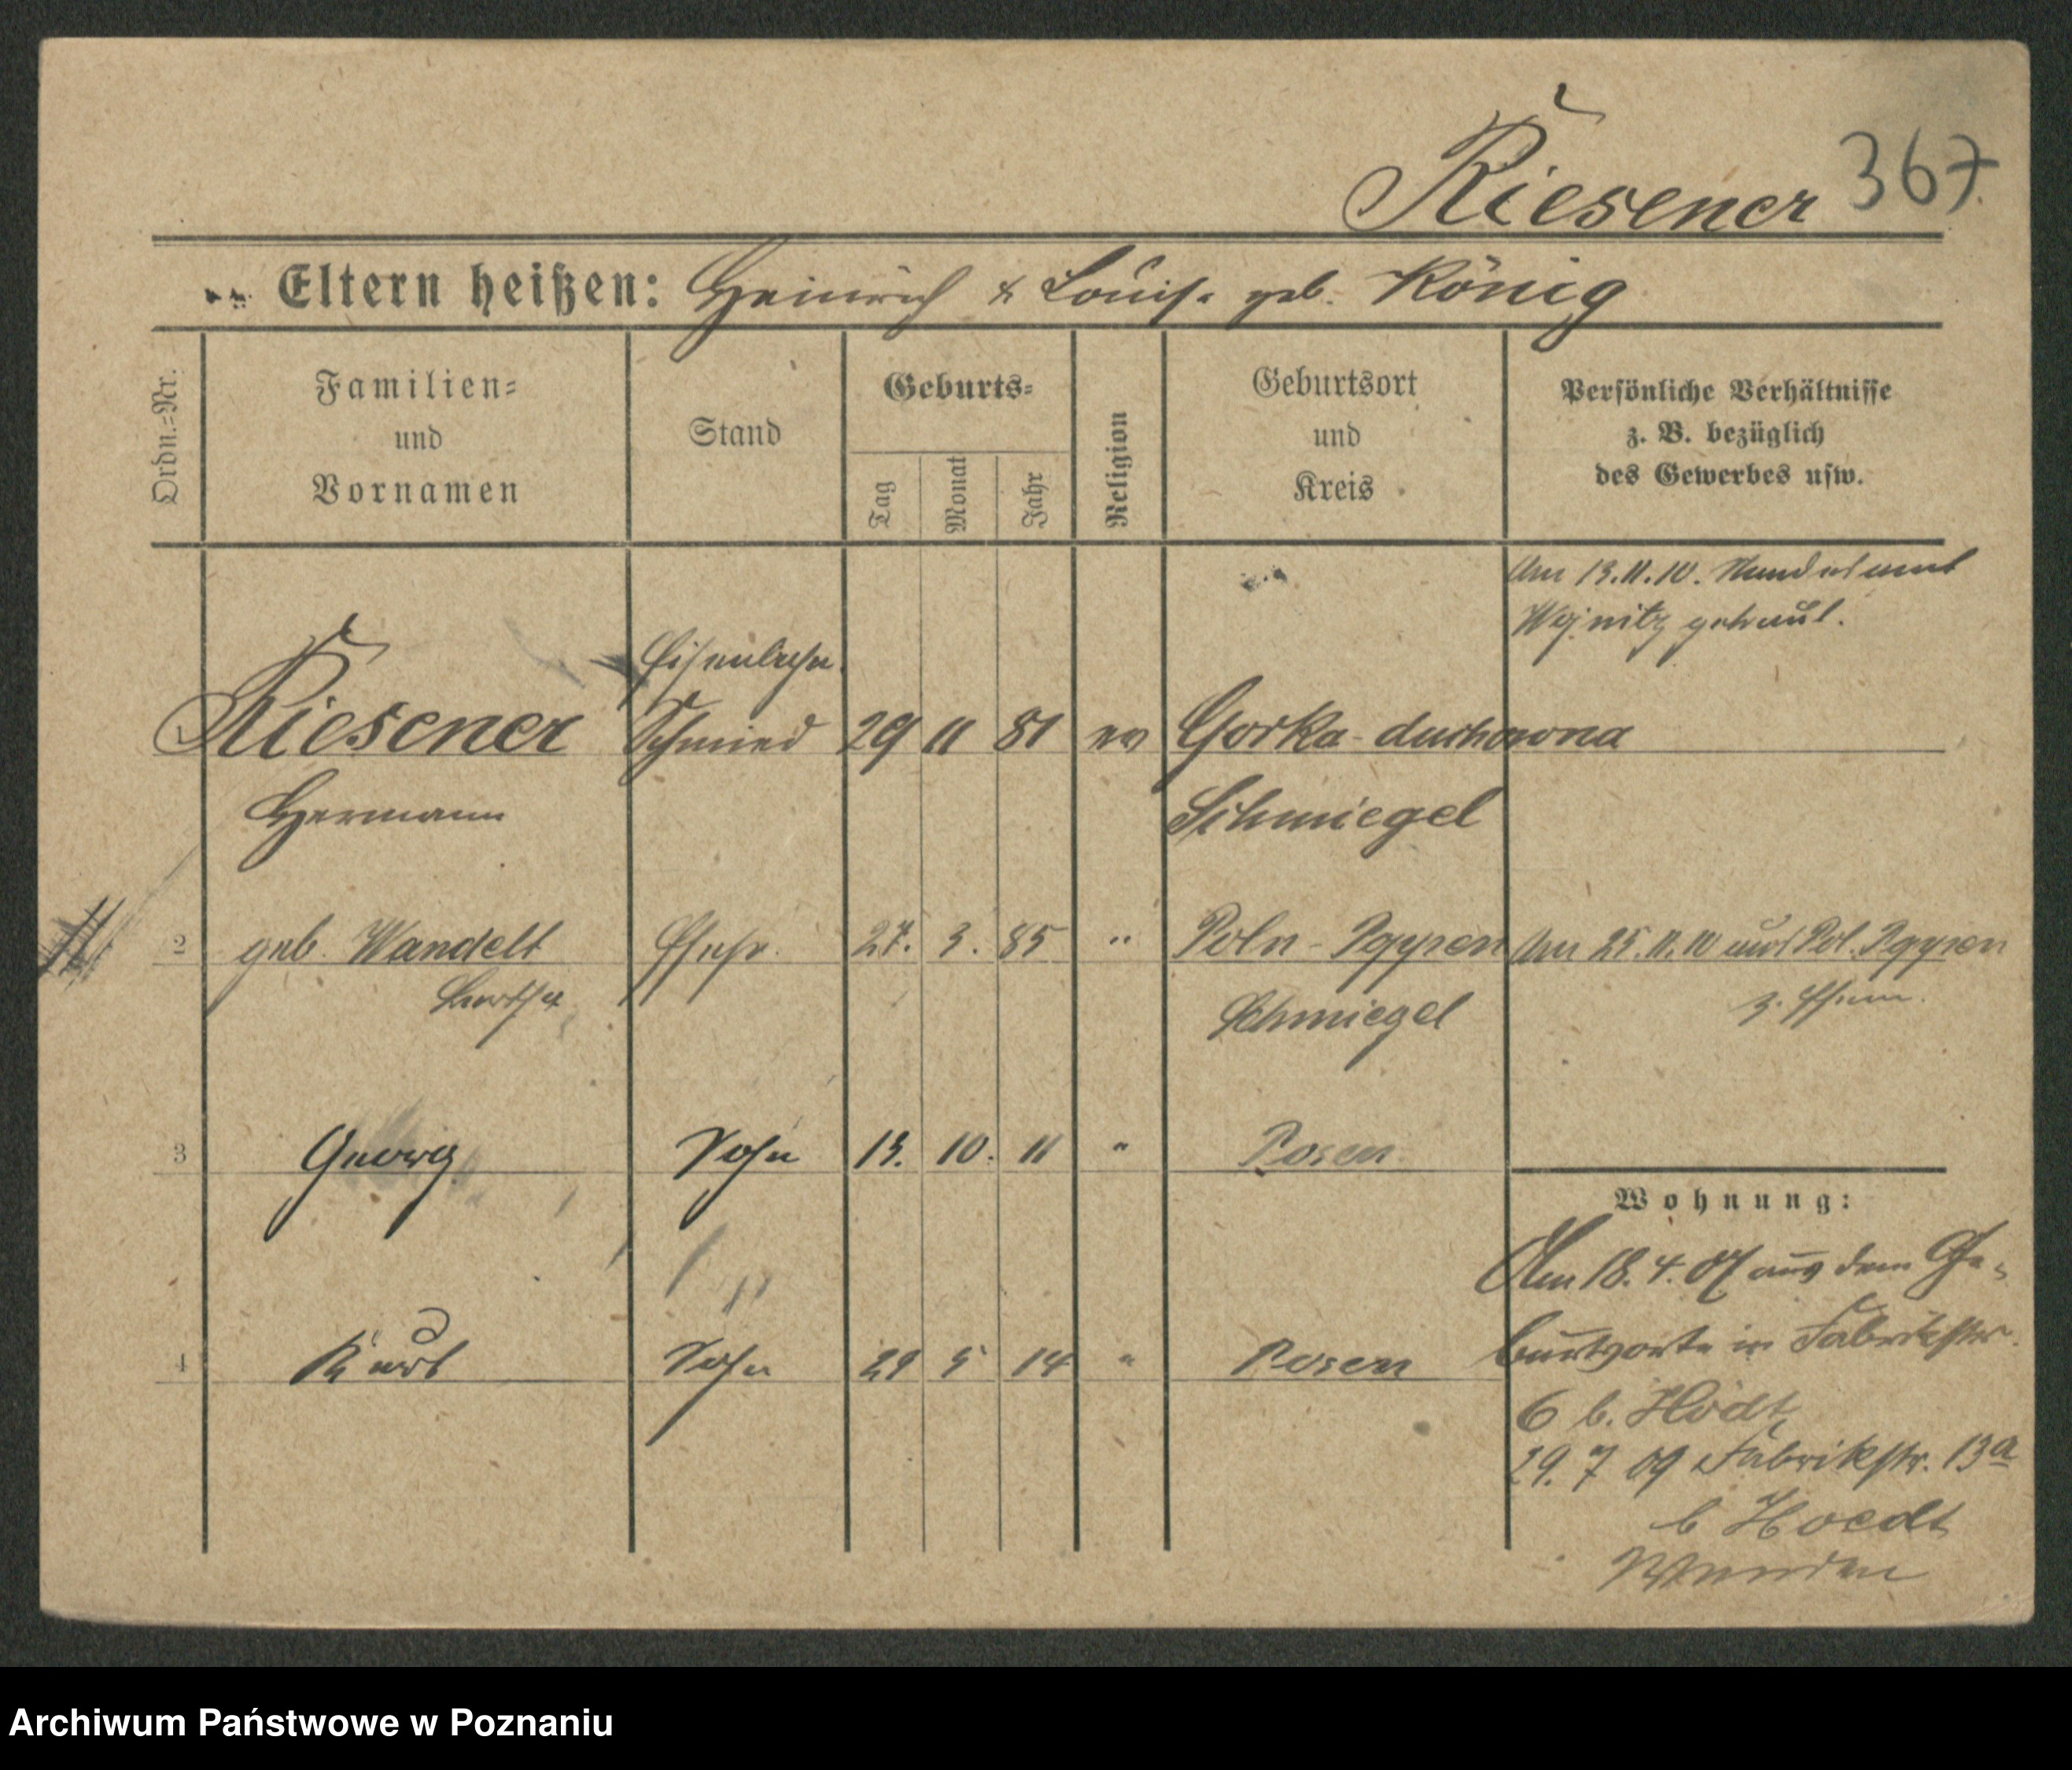 Riesener 367.
Eltern heißen: Heinrich & Louise geb. König
Ordn.=Nr.
Familien=
und
Vornamen
Stand
Geburts=
Tag
Monat
Jahr
Religion
Geburtsort
und
Kreis
Persönliche Verhältnisse
z. B. bezüglich
des Gewerbes usw.
Am 13.11.10. Standesamt
getraut.
Eisenbahn.
Riesener Schmied 29 11 81 ev Gorka-duchowna
Hermann Schmiegel
2 geb. Wandelt Ehefr. 27. 3. 85 " Poln-Poppen Am 25.11.10 aus Pol. Poppen
Bertha Schmiegel z. Ehem.
3 Georg Sohn 13. 10. 11 " Posen
Wohnung:
Am 18. 4. 07 aus dem Ge-
burtsorte in Fabrikstr.
4 Kurt Sohn 29 5 14 " Posen
6 b. Hödt
29. 7 09 Fabrikstr. 13a
b Hoedt
Archiwum Państwowe w Poznaniu